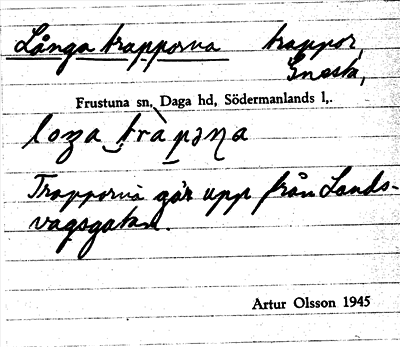 Långa trapporna trappor,
Gnesta,
Frustuna sn, Daga hd, Södermanlands l,.
Trapporna går upp från Lands-
vägsgatan.
Artur Olsson 1945